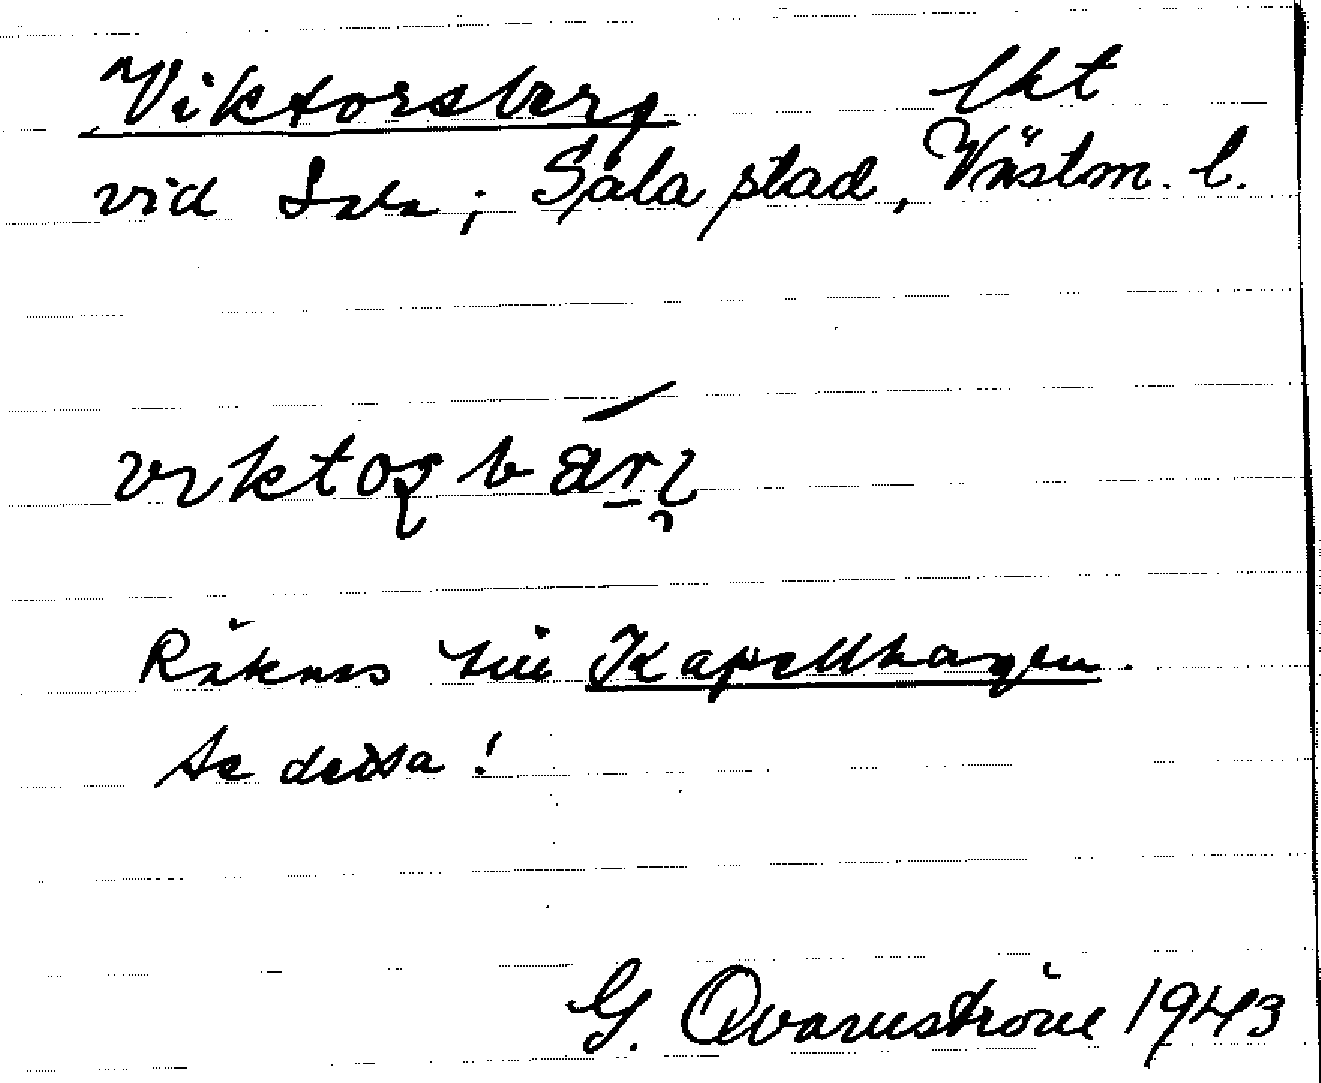 Viktorsberg lht
vid Sala; Sala stad, Västm. l.
Räknas till Kapellhagen.
Se dessa!
G. Qvarnström 1943